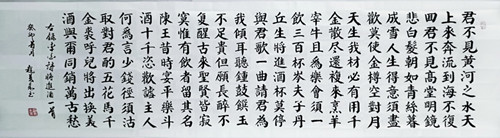 君不見黃河之水天
上來奔流到海不復
回君不見高堂明鏡
悲白髮朝如青絲暮
成雪人生得意須盡
歡莫使金樽空對月
天生我材必有用千
金散盡還復來烹羊
宰牛且為樂會須一
飲三百杯岑夫子丹
丘生將進酒杯莫停
與君歌一曲請君為
我傾耳聽鐘鼓饌玉
不足貴但願長醉不
復醒古來聖賢皆寂
寞惟有飲者留其名
陳王昔時宴平樂斗
酒十千恣歡謔主人
何為言少錢徑須沽
取對君酌五花馬千
金裘呼兒將出換美
酒與爾同銷萬古愁
右錄李白詩將進酒一首